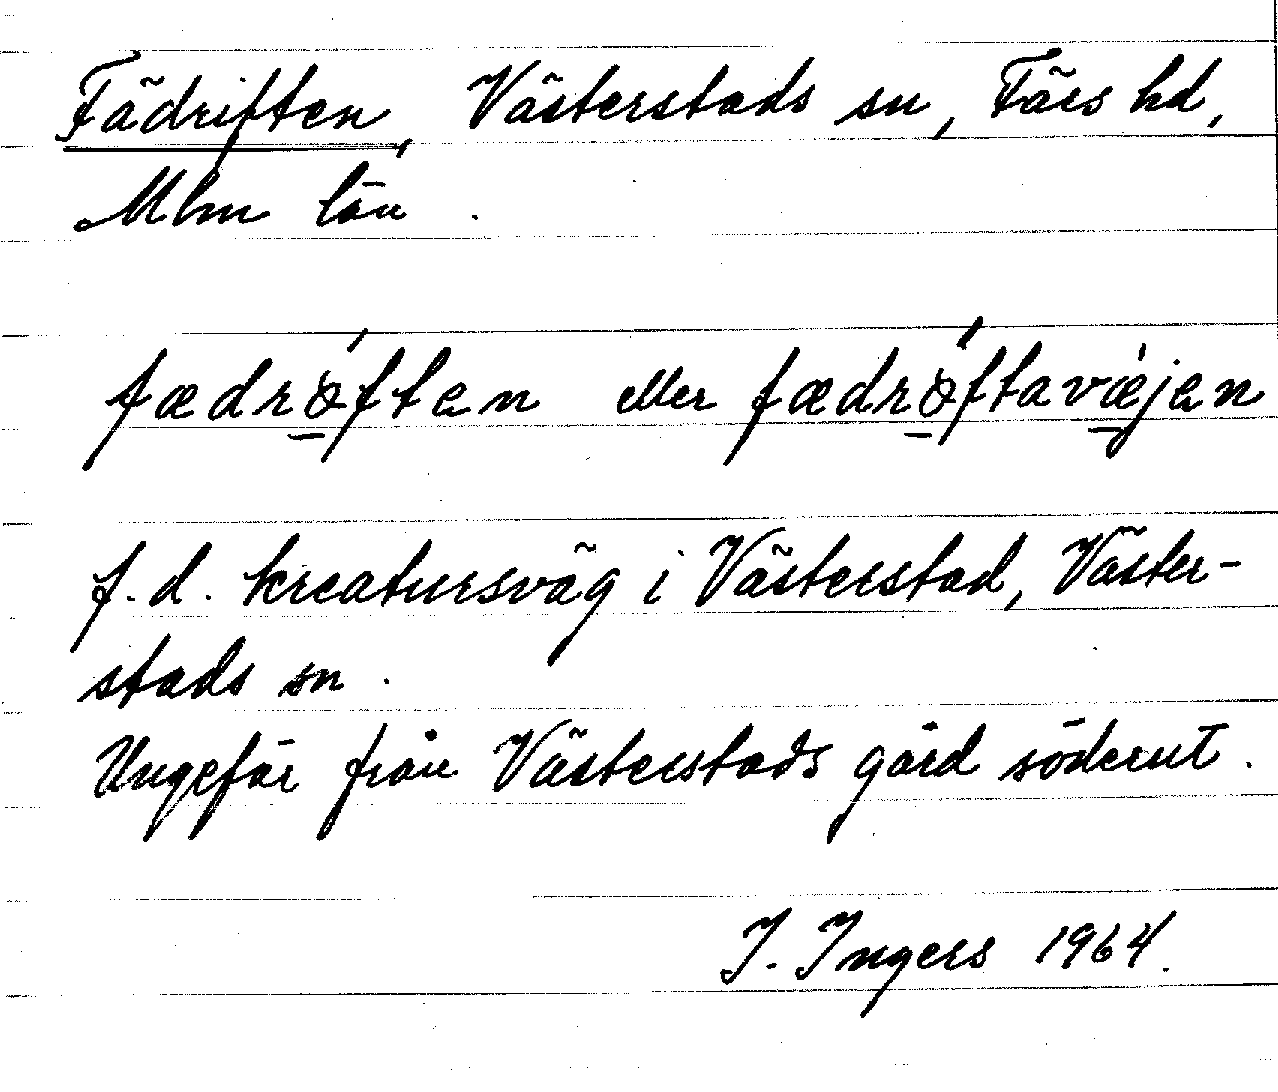 Fädriften, Västerstads sn, Färs hd,
Mlm län.
fædrö́ften eller fædrö́ftavæ̀jen
f.d. kreatursväg i Västerstad, Väster-
stads sn.
Ungefär från Västerstads gård söderut.
I. Ingers 1964.